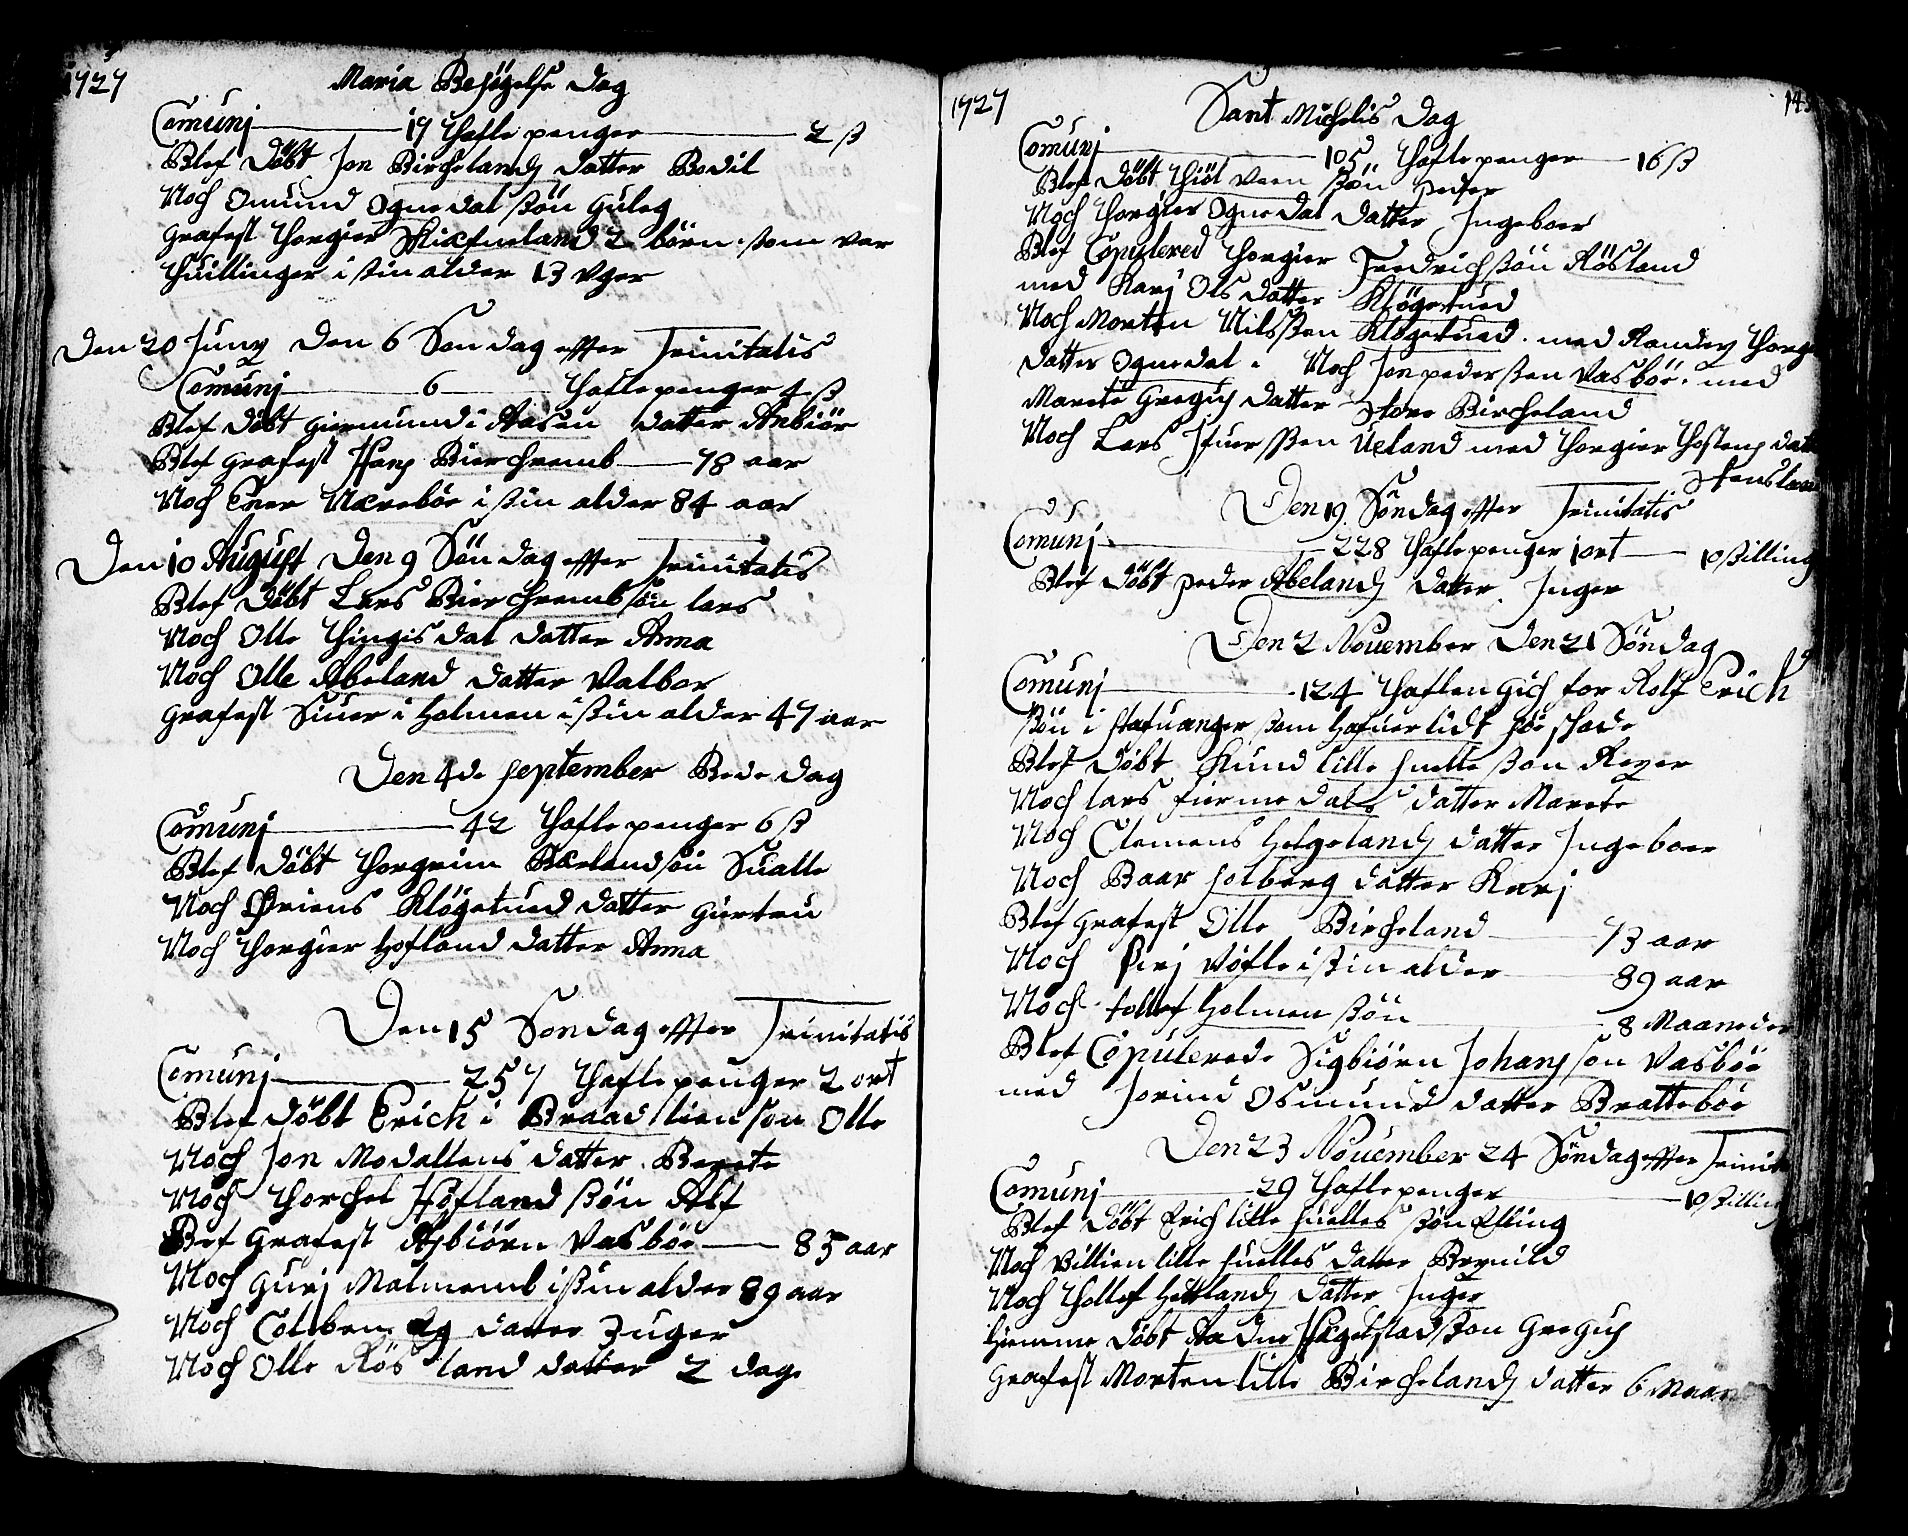 1727
Maria Besögelse Dag
Comunj 17 Tafle penger 2 ß
Blef Döbt Jon Birchelands datter Bodil
Noch Omund Ognedal ßön Guleg
Grafest Thorgier Skiæfueland 2 börn som var
thuillinger i ßin alder 13 Vger
Den 20 Juny Den 6 Söndag effter Trinitatis
Comunj 6 Tafle penger 4 ß
Blef döbt giermund i Aasen datter Anbiör
Blef grafest Hans Bierchremb 78 aar
Noch Ener Næreböe i ßin alder 84 aar
Den 10 August Den 9 Söndag effter Trinitatis
Blef Döbt Lars Bierchremb sön lars
Noch Olle dal datter Anna
Noch Olle Abeland datter Valbor
grafest Siuer i Holmen i ßin alder 47 aar
Den 4de september Bede dag
Comunj 42 Tafle penger 6 ß
Blef Döbt Thorgrim Bærland sön Sualle
Noch Öriens Klögetued datter giertru
Noch Thorgier Hofland datter Anna
Den 15 Söndag effter Trinitatis
Comunj 257 Tafle penger 2 ort
Blef döbt Erich i Braadlien son Olle
Noch Jon Modallens datter Berete
Noch Thorchel Höfland ßön Alf
Blef Grafest Asbiörn Vasböe 85 aar
Noch Gurj Malmemb i ßin alder 89 aar
Noch Colben datter Inger
Noch Olle Rösland datter 2 dage
1727
Sant Michelis Dag
Comunj 105 Tafle penger 16 ß
Blef Döbt Thiöl Veen ßön peder
Noch Thorgier Ognedal datter Ingeboer
Blef Copulered Thorgier Fredrichßön Rösland
med Karj Ols datter Klögetued
Noch Morten Nilsßen Klögetued med Randey Thorg
datter Ognedal Noch Jon pederßen Vasböe med
Marete Gregus datter Store Bircheland
Noch Lars Ifuersßen Ueland med Thorgier Thostens dat
Stensland
Den 19 Söndag effter Trinitatis
Comunj 228 Tafle penger 1 ort 10 ßilling
Blef Döbt peder Abelands datter Inger
Den 2 November Den 21 Söndag
Comunj 124 Taflen gich for Rolf Erich
ßön i stafuanger som hafuer lidt söe skade
Blef Döbt Knud lille huelle ßön Reyer
Noch lars fiermedals datter Marete
Noch Clemens Helgelands datter Ingeboer
Noch Baar solberg datter Karj
Blef grafest Olle Bircheland 73 aar
Noch Sirj Vöfle i ßin alder 89 aar
Noch tollef Holmen ßön 8 Maaneder
Blef Copulerede Sigbiörn Johansson Vasböe
med Jorind Osmund datter Bratteböe
Den 23 November 24 Söndag effter Trinit
Comunj 29 Tafle penger 10 ßilling
Blef Döbt Erich lille huelles ßön Elling
Noch Villien lille huelles datter Brynild
Noch Thollef Hetlands datter Inger
hiemme döbt Aadne Hægelstad ßön Gregus
Grafest Morten lille Birchelands datter 6 Maan